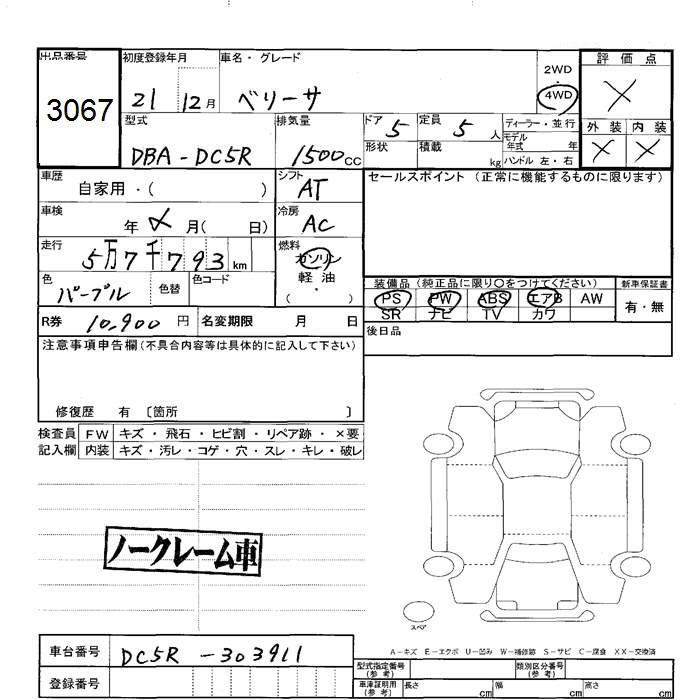 出品番号 3067
初度登録年月 21 12月
車名・グレード ベリーサ
2WD
4WD
評価点
×
外装 内装
× ×
型式 DBA-DC5R
排気量 1500cc
ドア 5
定員 5人
形状
積載 kg
ディーラー・並行
モデル年式 年
ハンドル 左・右
車歴 自家用・( )
シフト AT
セールスポイント (正常に機能するものに限ります)
車検 年 × 月( 日)
冷房 AC
走行 5万7千793km
燃料 ガソリン
軽油
( ・ )
色 パープル 色替 色コード
装備品 (純正品に限り○をつけてください) 新車保証書
PS PW ABS エアB AW 有・無
SR ナビ TV カワ
R券 10,900円 名変期限 月 日
後日品
注意事項申告欄(不具合内容等は具体的に記入して下さい)
修復歴 有 〔箇所 〕
検査員 FW キズ・飛石・ヒビ割・リペア跡・×要
記入欄 内装 キズ・汚レ・コゲ・穴・スレ・キレ・破レ
ノークレーム車
スペア
A-キズ E-エクボ U-凹み W-補修跡 S-サビ C-腐食 XX-交換済
車台番号 DC5R-303911
登録番号
型式指定番号(参考) 類別区分番号(参考)
車庫証明用(参考) 長さ cm 幅 cm 高さ cm